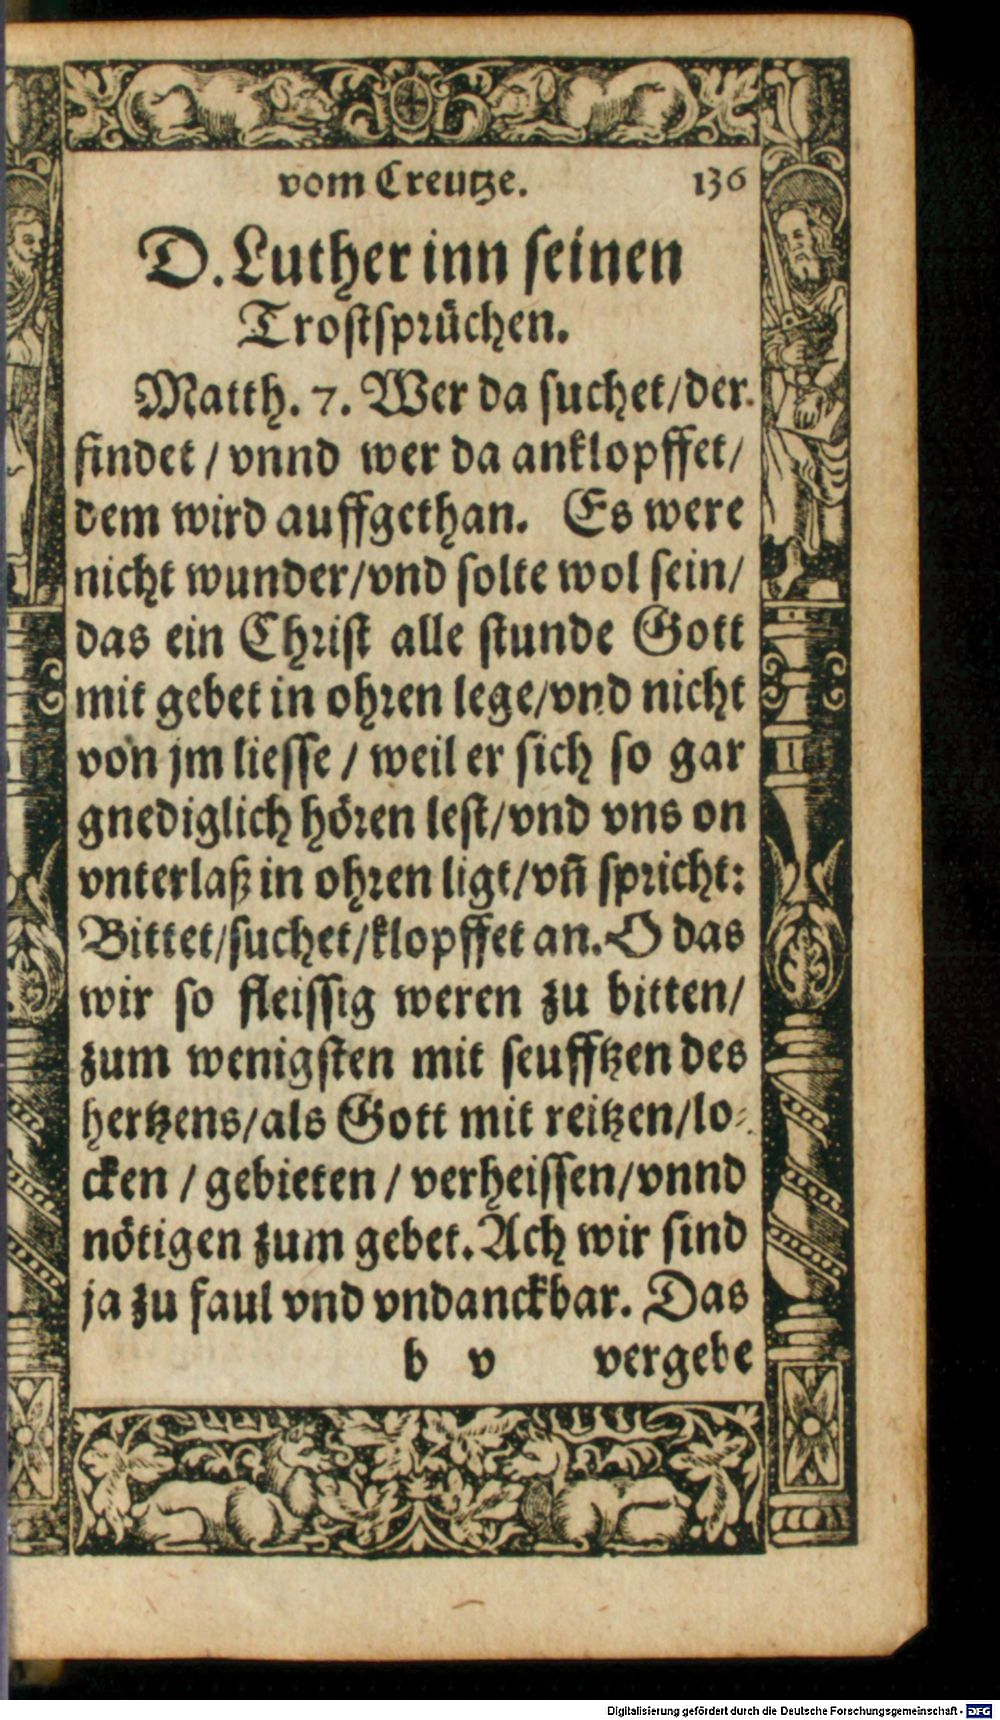 vom Creutze. 136
D. Luther inn seinen
Trostsprüchen.
Matth. 7. Wer da suchet/der
findet / vnnd wer da anklopffet/
dem wird auffgethan. Es were
nicht wunder/vnd solte wol sein/
das ein Christ alle stunde Gott
mit gebet in ohren lege/vnd nicht
von jm liesse / weil er sich so gar
gnediglich hören lest/vnd vns on
vnterlaß in ohren ligt/vñ spricht:
Bittet/suchet/klopffet an. O das
wir so fleissig weren zu bitten/
zum wenigsten mit seufftzen des
hertzens/als Gott mit reitzen/lo⸗
cken / gebieten / verheissen/vnnd
nötigen zum gebet. Ach wir sind
ja zu faul vnd vndanckbar. Das
b v vergebe
Digitalisierung gefördert durch die Deutsche Forschungsgemeinschaft - DFG